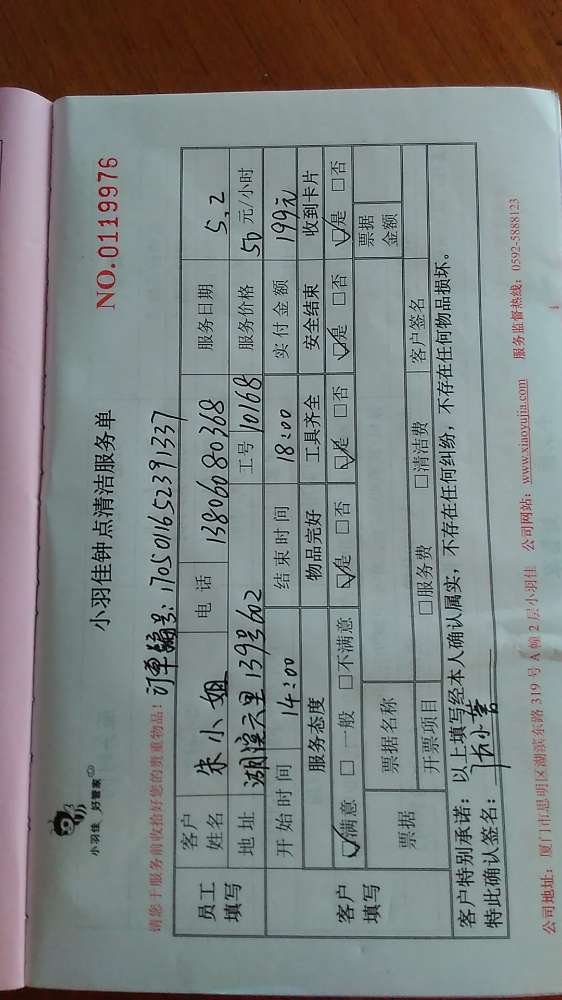 小羽佳 好管家
小羽佳钟点清洁服务单
NO.0119976
请您于服务前收拾好您的贵重物品!
订单编号:170501652391337
员工填写
客户姓名 朱小姐 电话 13806080368 服务日期 5.2
地址 湖滨六里139号602 工号 10168 服务价格 50 元/小时
开始时间 14:00 结束时间 18:00 实付金额 199元
客户填写
服务态度 物品完好 工具齐全 安全结束 收到卡片
☑满意 □一般 □不满意 ☑是 □否 ☑是 □否 ☑是 □否 ☑是 □否
票据 票据名称 票据金额
开票项目 □服务费 □清洁费 客户签名
客户特别承诺:以上填写经本人确认属实,不存在任何纠纷,不存在任何物品损坏。
特此确认签名:
公司地址:厦门市思明区湖滨东路319号A幢2层小羽佳 公司网站:www.xiaoyujia.com 服务监督热线:0592-5888123